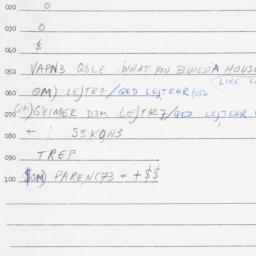 020 0
030 0
040 $
050 VAPN3 QGLE WHAT YOU BUILD A HOUSE
(LIKE
060 OM) LEJTR7/QED LEJTEHR (OTO
070 OM) GYIMER DJM LEJTR7/QED LEJTEUR
080 + ; S1KONS
090 TREP
100 $OM) PARENC73 = +$$